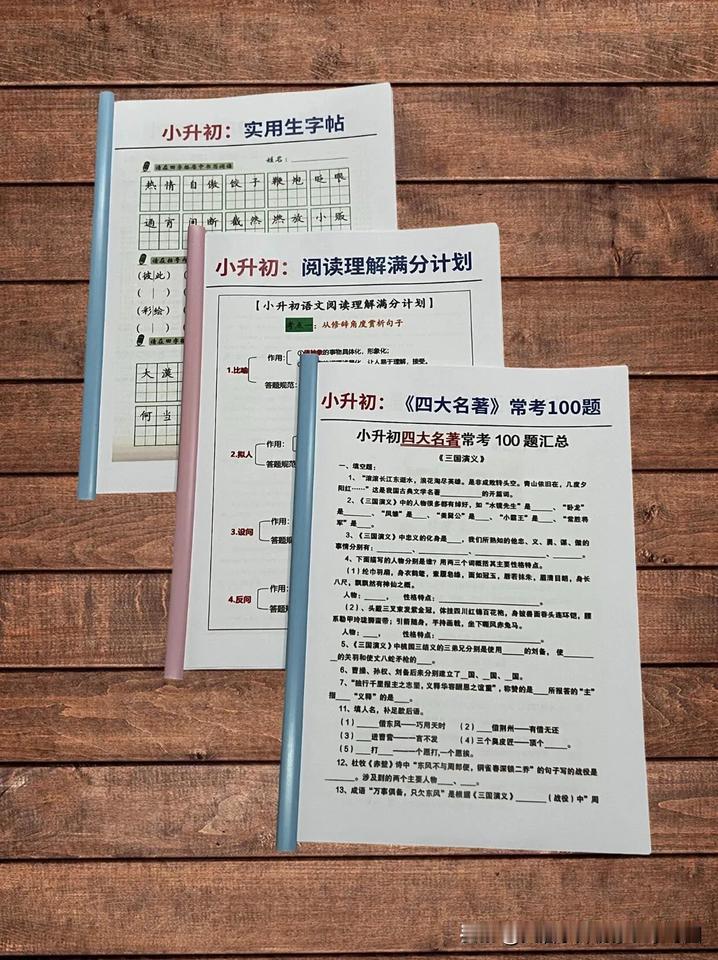 小升初：实用生字帖
姓名：
请在田字格落中书写词语
热情 自傲 饺子 鞭炮 眨眼
通宵 间断 截然 燃放 小贩
(彼此)
(彩绘)
大漠
何当
小升初：阅读理解满分计划
【小升初语文阅读理解满分计划】
考点一：从修辞角度赏析句子
作用：
1.比喻
答题规范：
作用：
2.拟人
答题规范：
作用：
3.设问
答题规范：
作用：
4.反问
答题规范：
小升初：《四大名著》常考100题
小升初四大名著常考 100 题汇总
《三国演义》
一、填空题：
1、“滚滚长江东逝水，浪花淘尽英雄。是非成败转头空。青山依旧在，几度夕
阳红……”这是我国古典文学名著______的开篇词。
2、《三国演义》中的人物很多都有绰号，如“水镜先生”是____、“卧龙”
是____、“凤雏”是____、“美髯公”是____、“小霸王”是____、“常胜将
军”是____。
3、《三国演义》中忠义的化身是____，我们所熟知的他忠、义、勇、谋、傲的
事情分别有：______、______、______、______、______。
4、下面描写的人物分别是谁？用两三个词概括其主要性格特点。
（1）纶巾羽扇，身衣鹤氅，素履皂绦，面如冠玉，唇若抹朱，眉清目朗，身长
八尺，飘飘然有神仙之概。
人物：____， 性格特点：______________。
（2）、头戴三叉束发紫金冠，体挂四川红锦百花袍，身披兽面吞头连环铠，腰
系勒甲玲珑狮蛮带；弓箭随身，手持画戟，坐下嘶风赤兔马。
人物：____， 性格特点：______________。
5、《三国演义》中桃园三结义的三弟兄分别是使用____的刘备， 使____
的关羽和使丈八蛇矛枪的____。
6、曹操、孙权、刘备后来分别建立了__国、__国、__国。
7、“独行千里报主之志坚，义释华容酬恩之谊重”，称赞的是____所报答的“主”
指____“义释”的是____。
11、填人名，补足歇后语。
（1）____借东风——巧用天时 （2）____借荆州——有借无还
（3）____进曹营——一言不发 （4）三个臭皮匠——顶个____。
（5）____打____——一个愿打,一个愿挨。
12、杜牧《赤壁》诗中“东风不与周郎便，铜雀春深锁二乔”的句子写的战役是
______。涉及到的两个主要人物____、____。
13、成语“万事俱备，只欠东风”是根据《三国演义》______（战役）中“周